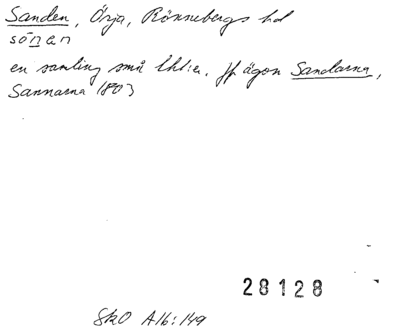 Sanden, Örja, Rönnebergs hd
sónen
en samling små lht:er. Jf ägon Sandarna,
Sannarna 1803
28128
SkO A16:149